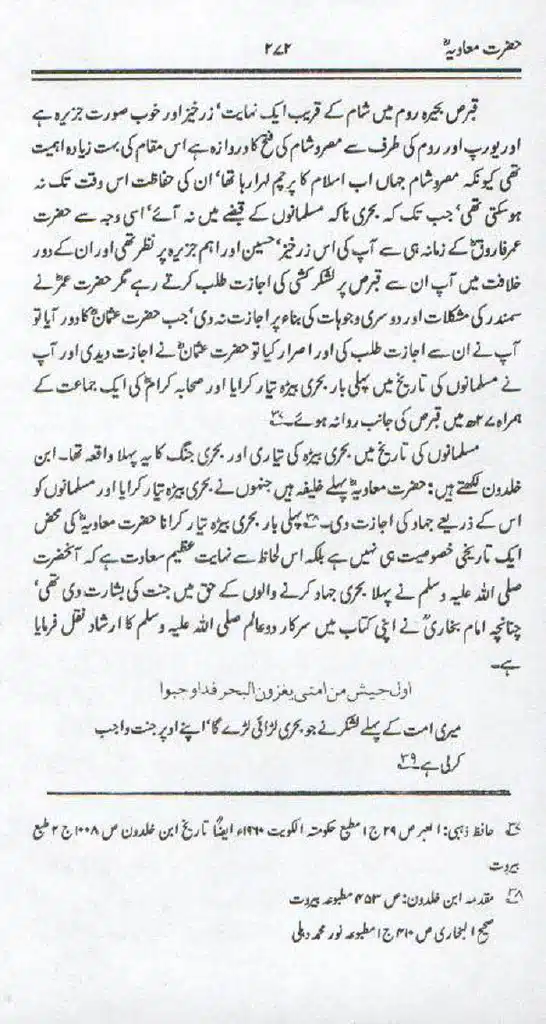 حضرت معاویہؓ ۲۷۲
قبرص بحیرہ روم میں شام کے قریب ایک نہایت‘ زرخیز اور خوب صورت جزیرہ ہے
اور یورپ اور روم کی طرف سے مصر و شام کی فتح کا دروازہ ہے اس مقام کی بہت زیادہ اہمیت
تھی کیونکہ مصر و شام جہاں اب اسلام کا پرچم لہرا رہا تھا‘ ان کی حفاظت اس وقت تک نہ
ہو سکتی تھی‘ جب تک کہ بحری ناکہ مسلمانوں کے قبضے میں نہ آئے‘ اسی وجہ سے حضرت
عمر فاروقؓ کے زمانہ ہی سے آپ کی اس زرخیز‘ حسین اور اہم جزیرہ پر نظر تھی اور ان کے دور
خلافت میں آپ ان سے قبرص پر لشکر کشی کی اجازت طلب کرتے رہے مگر حضرت عمرؓ نے
سمندر کی مشکلات اور دوسری وجوہات کی بناء پر اجازت نہ دی‘ جب حضرت عثمانؓ کا دور آیا تو
آپ نے ان سے اجازت طلب کی اور اصرار کیا تو حضرت عثمانؓ نے اجازت دیدی اور آپ
نے مسلمانوں کی تاریخ میں پہلی بار بحری بیڑہ تیار کرایا اور صحابہ کرامؓ کی ایک جماعت کے
ہمراہ ۲۷ھ میں قبرص کی جانب روانہ ہوئے۔
مسلمانوں کی تاریخ میں بحری بیڑہ کی تیاری اور بحری جنگ کا یہ پہلا واقعہ تھا۔ ابن
خلدون لکھتے ہیں: حضرت معاویہؓ پہلے خلیفہ ہیں جنہوں نے بحری بیڑہ تیار کرایا اور مسلمانوں کو
اس کے ذریعے جہاد کی اجازت دی۔ ۳۸ پہلی بار بحری بیڑہ تیار کرانا حضرت معاویہؓ کی محض
ایک تاریخی خصوصیت ہی نہیں ہے بلکہ اس لحاظ سے نہایت عظیم سعادت ہے کہ آنحضرت
صلی اللہ علیہ وسلم نے پہلا بحری جہاد کرنے والوں کے حق میں جنت کی بشارت دی تھی‘
چنانچہ امام بخاریؒ نے اپنی کتاب میں سرکار دوعالم صلی اللہ علیہ وسلم کا ارشاد نقل فرمایا
ہے۔
اول جیش من امتی یغزون البحر فداو جبوا
میری امت کے پہلے لشکر نے جو بحری لڑائی لڑے گا‘ اپنے اوپر جنت واجب
کرلی ہے۔ ۳۹
۳۷ حافظ ذہبی: العبر ص ۲۹ ج ۱ مطبع حکومتہ الکویت ۱۹۶۰ء ایضاً تاریخ ابن خلدون ص ۱۰۰۸ ج ۲ طبع
بیروت
۳۸ مقدمہ ابن خلدون: ص ۴۵۳ مطبوعہ بیروت
صحیح البخاری ص ۴۱۰ ج ۱ مطبوعہ نور محمد دہلی